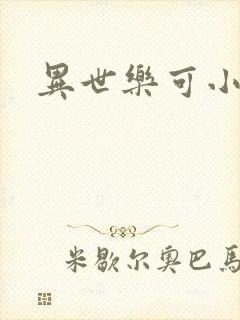 異世樂可小
米歇尔奥巴馬